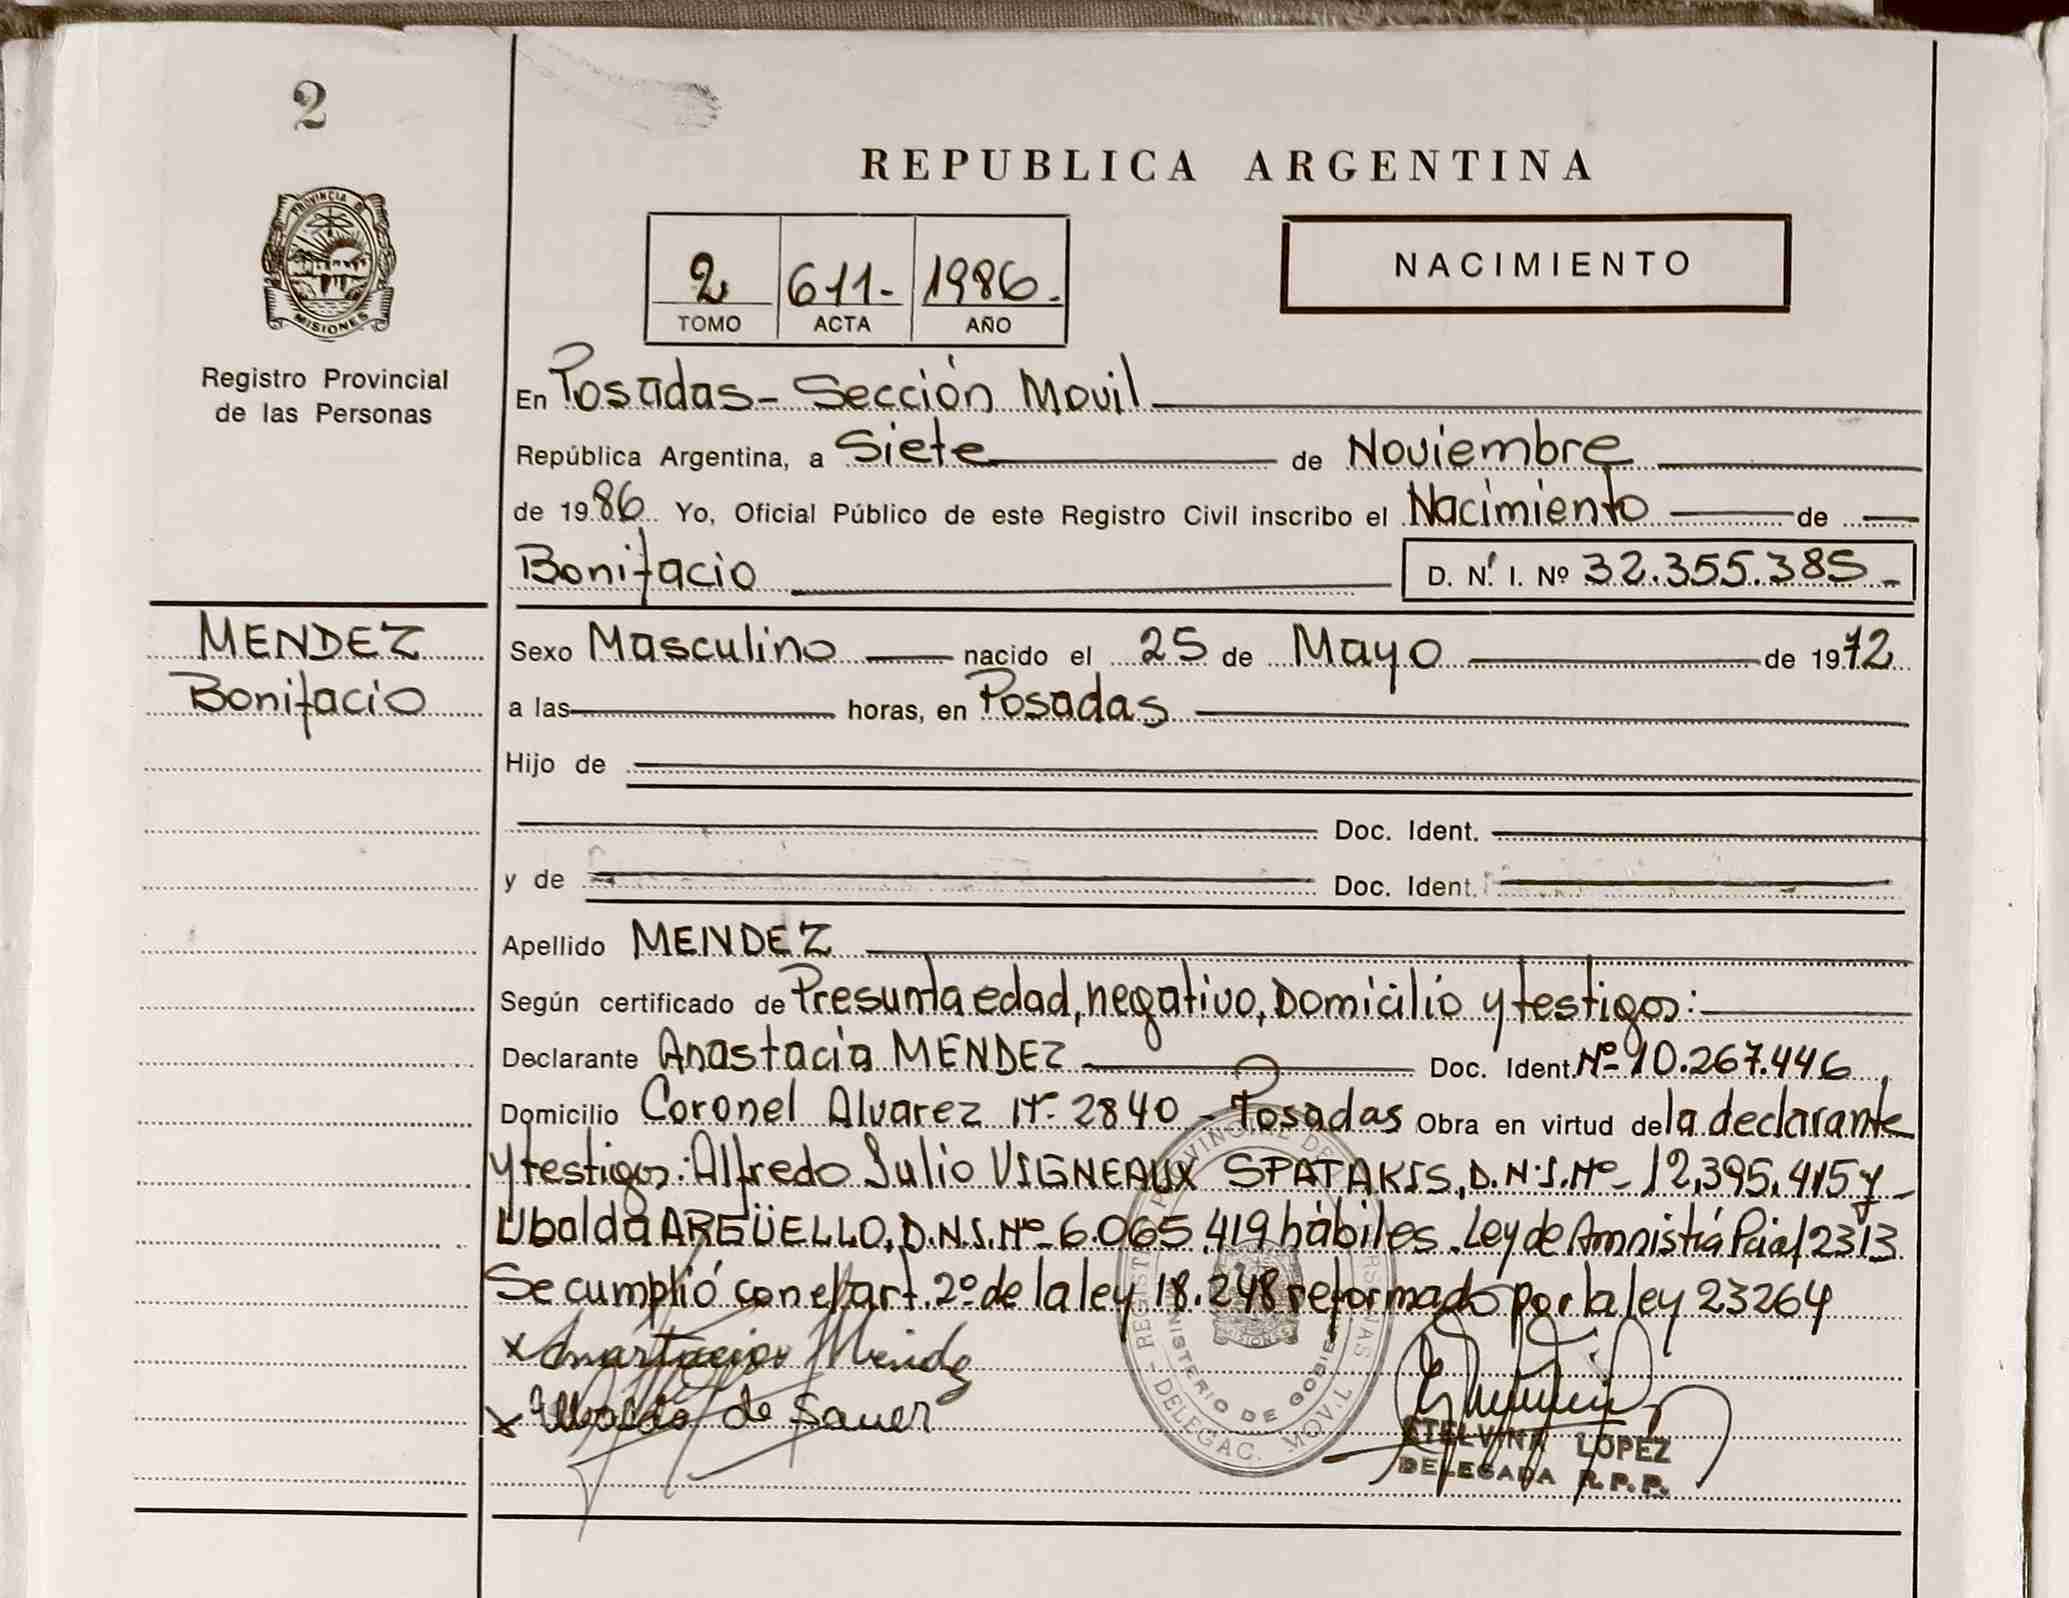 2
REPUBLICA ARGENTINA
PROVINCIA DE
MISIONES
Registro Provincial
de las Personas
2 611- 1986.
TOMO ACTA AÑO
NACIMIENTO
En Posadas- Sección Movil
República Argentina, a Siete de Noviembre
de 1986 Yo, Oficial Público de este Registro Civil inscribo el Nacimiento de
Bonifacio D. N. I. Nº 32.355.385-
MENDEZ
Bonifacio
Sexo Masculino nacido el 25 de Mayo de 1972
a las horas, en Posadas
Hijo de
Doc. Ident.
y de Doc. Ident.
Apellido MENDEZ
Según certificado de Presunta edad, negativo, Domicilio y testigos:
Declarante Anastacia MENDEZ Doc. Ident. Nº 10.267.446
Domicilio Coronel Alvarez Nº 2840 - Posadas Obra en virtud de la declarante
y testigos: Alfredo Julio VIGNEAUX SPATAKIS, D.N.I. Nº 12,395.415 y -
Ubalda ARGÜELLO, D.N.I. Nº 6.065.419 hábiles. Ley de Amnistiá Pcial 2313
Se cumplió con el art. 2º de la ley 18.248 reformado por la ley 23264
x Anastacia Mendez
x de Sauer
DELEGAC. MOVIL
MINISTERIO DE GOBIE
MISIONES
ETELVINA LOPEZ
DELEGADA R.P.P.